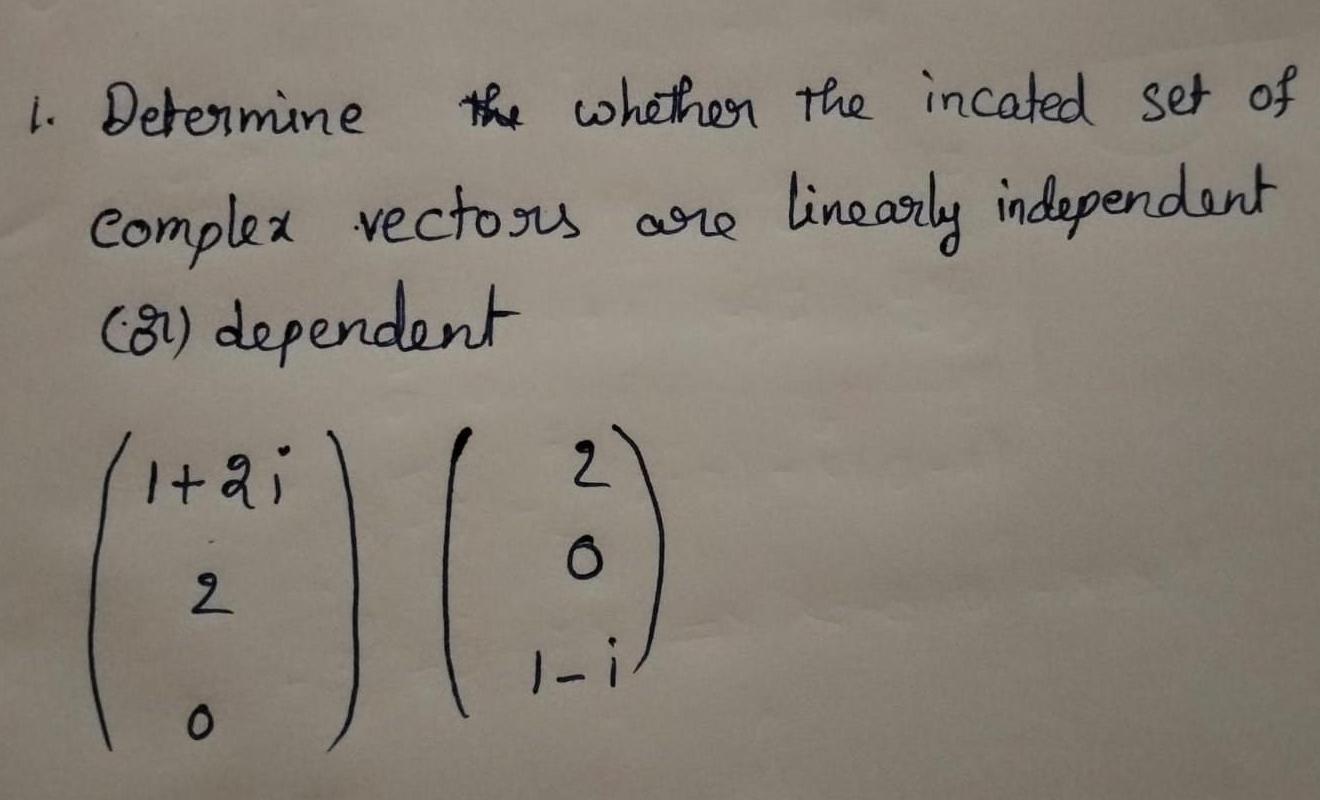 1. Determine the whether the incated set of
complex vectors are linearly independent
(or) dependent
1+2i 2
2 0
0 1-i